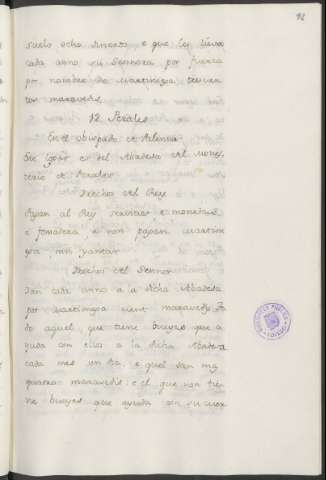 suelo ocho dineros e que les lieva
cada anno su Sennora por fuerza
por nombre de martiniega treinta
maravedis
12 Perales
En el obispado de Palencia
Este logar es del Abadesa del mones
terio de Perales
Derechos del Rey
Pagan al Rey servicios e monedas
e fonsadera e non pagan martin
iega nin yantar
Derechos del Sennor
Dan cada anno a la dicha Abadesa
por martiniega cient maravedis
de aquel que tiene bueyes que a
yuda con ellos a la dicha Abadesa
cada mes un dia e quel dan
maravedis e el que non tie
ne bueyes que ayuda con su cuer